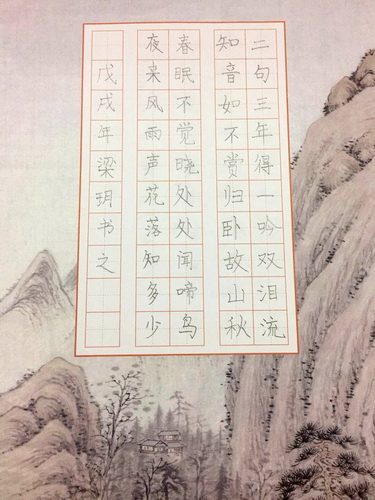 二句三年得一吟双泪流
知音如不赏归卧故山秋
春眠不觉晓处处闻啼鸟
夜来风雨声花落知多少
戊戌年梁玥书之